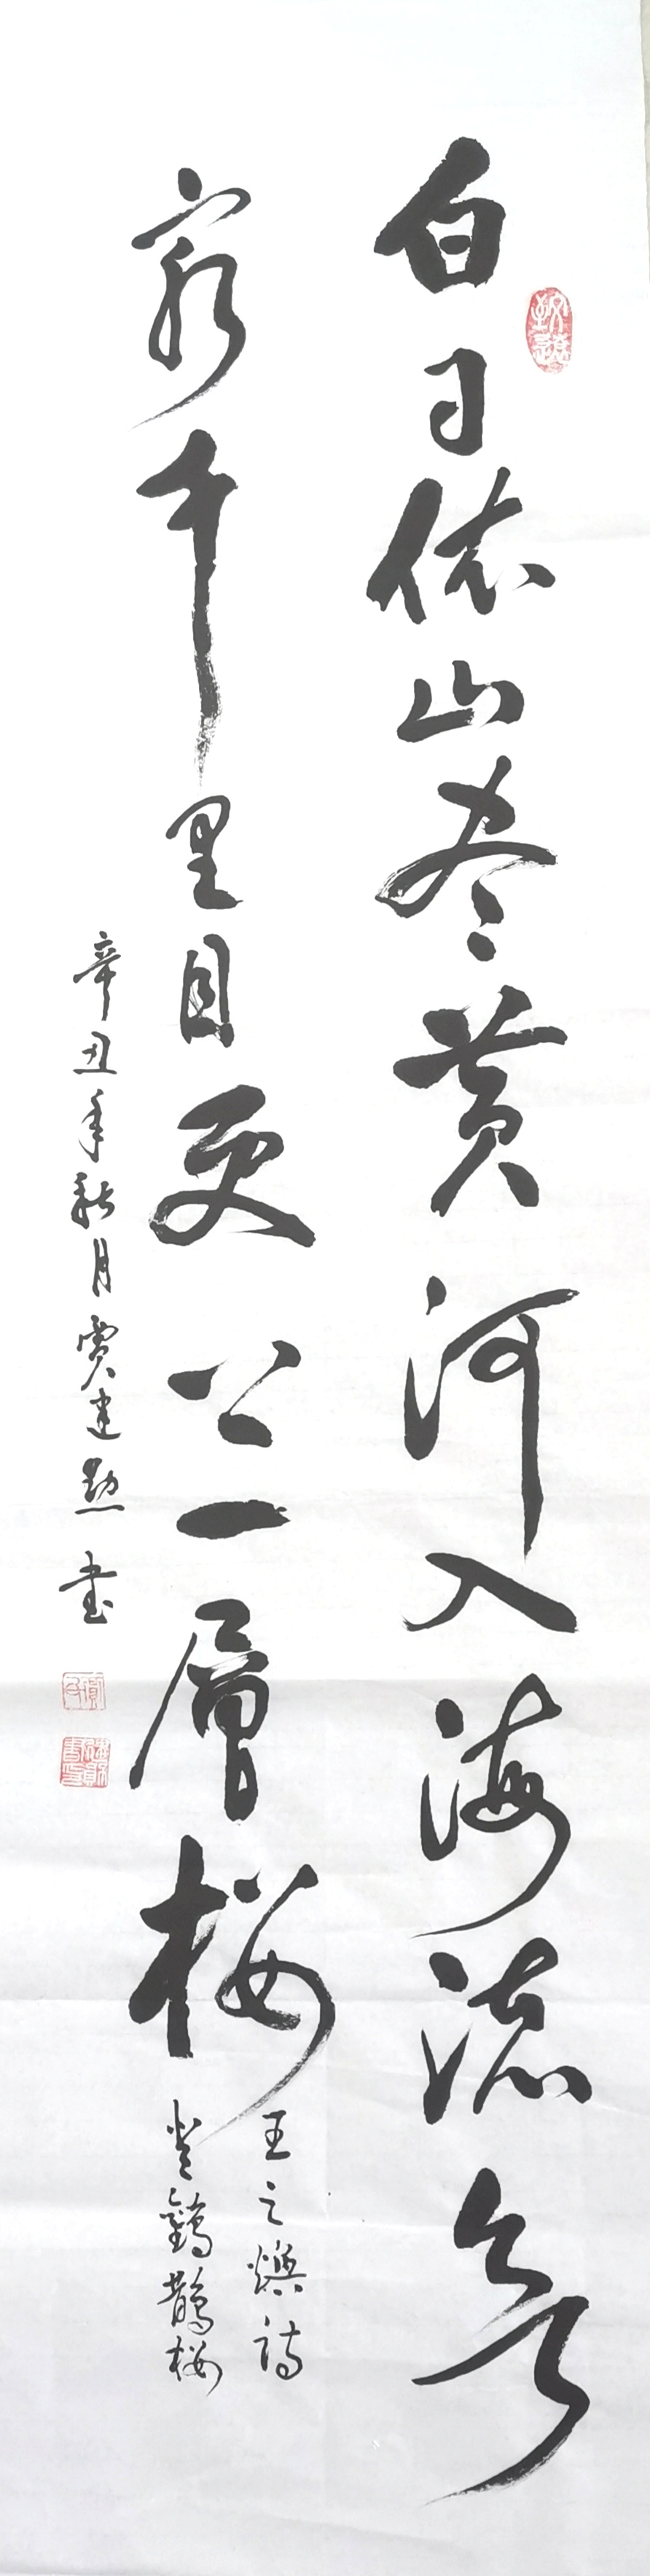 白日依山尽黄河入海流欲
穷千里目更上一层楼
王之焕诗
登鹳鹊楼
辛丑年秋月贾建勋书